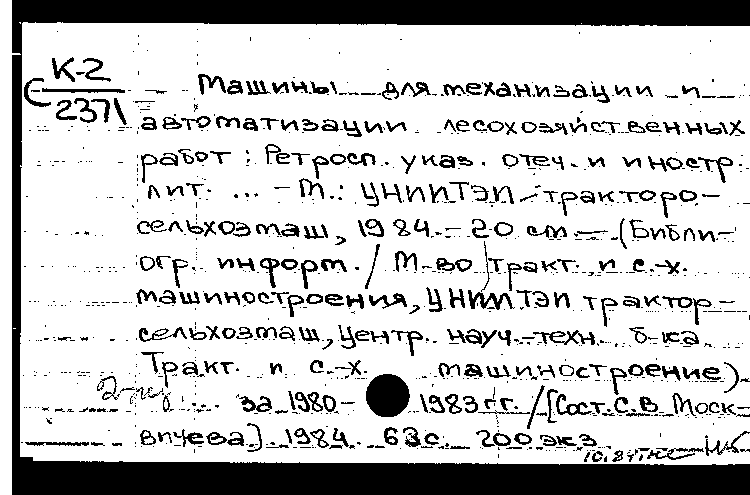 К-2
2371
Машины для механизации и
автоматизации лесохозяйственных
работ : Ретросп. указ. отеч. и иностр.
лит. ... - М.: ЦНИИТЭИ тракторо-
сельхозмаш, 1984. - 20 см. - (Библи-
огр. информ. / М-во тракт. и с.-х.
машиностроения, ЦНИИТЭИ трактор-
сельхозмаш, Центр. науч.-техн. б-ка.
Тракт. и с.-х. машиностроение).
... за 1980 - 1983 гг. / [Сост. С.В. Моск-
вичева]. 1984. 63 с. 200 экз
10.84